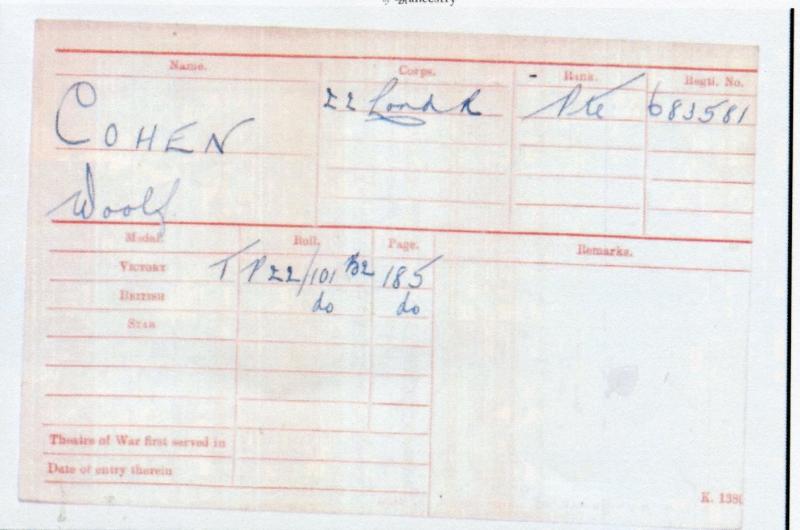 Ancestry
Name. Corps. Rank. Regtl. No.
COHEN 22 Lond R Pte 683581
Woolf
Medal. Roll. Page. Remarks.
VICTORY TP 22/101 B2 185
BRITISH do do
STAR
Theatre of War first served in
Date of entry therein
K. 1380